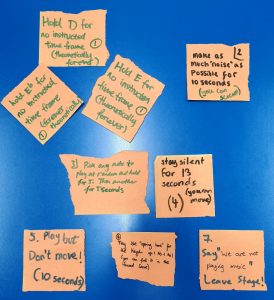 Hold D for
no instructed
time frame
(theoretically
forever)
1
hold Eb for
no instructed
time frame
(forever
theoretically)
1
Hold E for
no instructed
time frame
(theoretically
forever)
1
2
make as
much "noise" as
possible for
10 seconds
(you can
scream)
3) Pick any note to
play at random and hold
for 5. Then another
for 7 seconds
stay silent
for 13
seconds
(4) (you can
move)
5. Play but
Don't move!
(10 seconds)
6
Play the "spring
7.
Say "we are not
playing music"
Leave Stage!